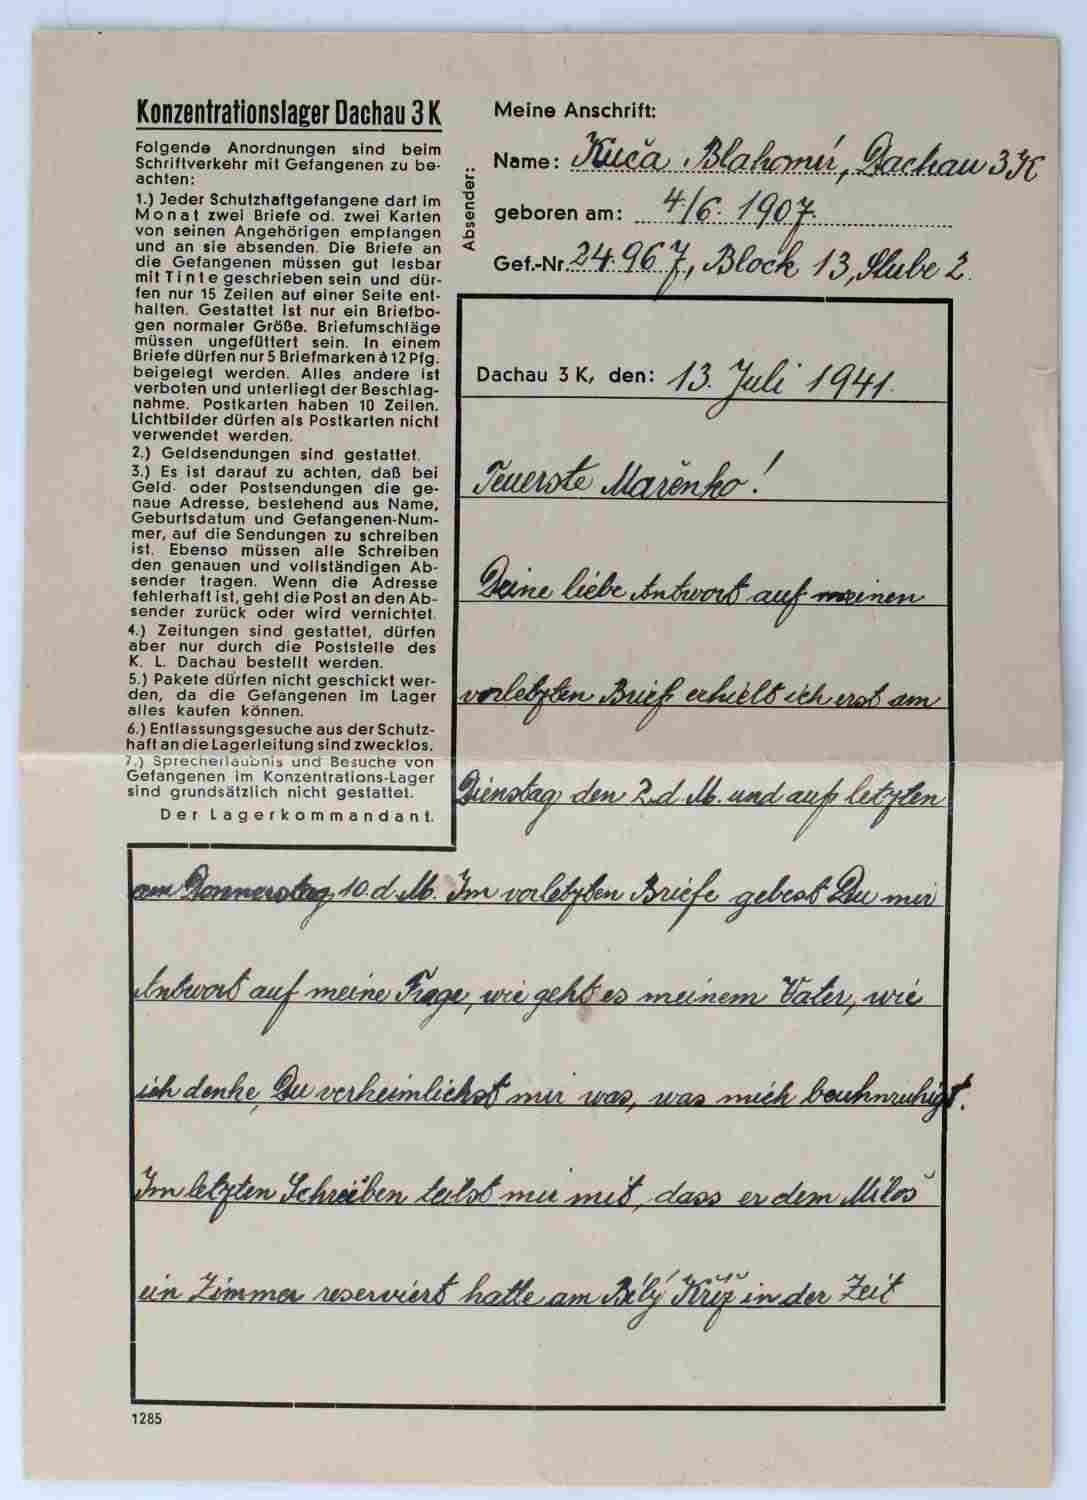 Konzentrationslager Dachau 3 K
Folgende Anordnungen sind beim
Schriftverkehr mit Gefangenen zu be-
achten:
1.) Jeder Schutzhaftgefangene darf im
Monat zwei Briefe od. zwei Karten
von seinen Angehörigen empfangen
und an sie absenden. Die Briefe an
die Gefangenen müssen gut lesbar
mit Tinte geschrieben sein und dür-
fen nur 15 Zeilen auf einer Seite ent-
halten. Gestattet ist nur ein Briefbo-
gen normaler Größe. Briefumschläge
müssen ungefüttert sein. In einem
Briefe dürfen nur 5 Briefmarken à 12 Pfg.
beigelegt werden. Alles andere ist
verboten und unterliegt der Beschlag-
nahme. Postkarten haben 10 Zeilen.
Lichtbilder dürfen als Postkarten nicht
verwendet werden.
2.) Geldsendungen sind gestattet.
3.) Es ist darauf zu achten, daß bei
Geld- oder Postsendungen die ge-
naue Adresse, bestehend aus Name,
Geburtsdatum und Gefangenen-Num-
mer, auf die Sendungen zu schreiben
ist. Ebenso müssen alle Schreiben
den genauen und vollständigen Ab-
sender tragen. Wenn die Adresse
fehlerhaft ist, geht die Post an den Ab-
sender zurück oder wird vernichtet.
4.) Zeitungen sind gestattet, dürfen
aber nur durch die Poststelle des
K. L. Dachau bestellt werden.
5.) Pakete dürfen nicht geschickt wer-
den, da die Gefangenen im Lager
alles kaufen können.
6.) Entlassungsgesuche aus der Schutz-
haft an die Lagerleitung sind zwecklos.
7.) Sprecherlaubnis und Besuche von
Gefangenen im Konzentrations-Lager
sind grundsätzlich nicht gestattet.
Der Lagerkommandant.
Absender:
Meine Anschrift:
Name: Kuča Blahomír, Dachau 3 K
geboren am: 4/6. 1907.
Gef.-Nr. 24.967, Block 13, Stube 2.
Dachau 3 K, den: 13. Juli 1941.
Teuerste Mařenko!
Deine liebe Antwort auf meinen
vorletzten Brief erhielt ich erst am
Dienstag den 2. d. M. und auf letzten
am Donnerstag 10. d. M. Im vorletzten Briefe gebest Du mir
Antwort auf meine Frage, wie geht es meinem Vater, wie
ich denke, Du verheimlichst mir was, was mich beuhnruhigt.
Im letzten Schreiben teilst mir mit, dass er dem Miloš
ein Zimmer reserviert hatte am Bílý Kříž in der Zeit
1285